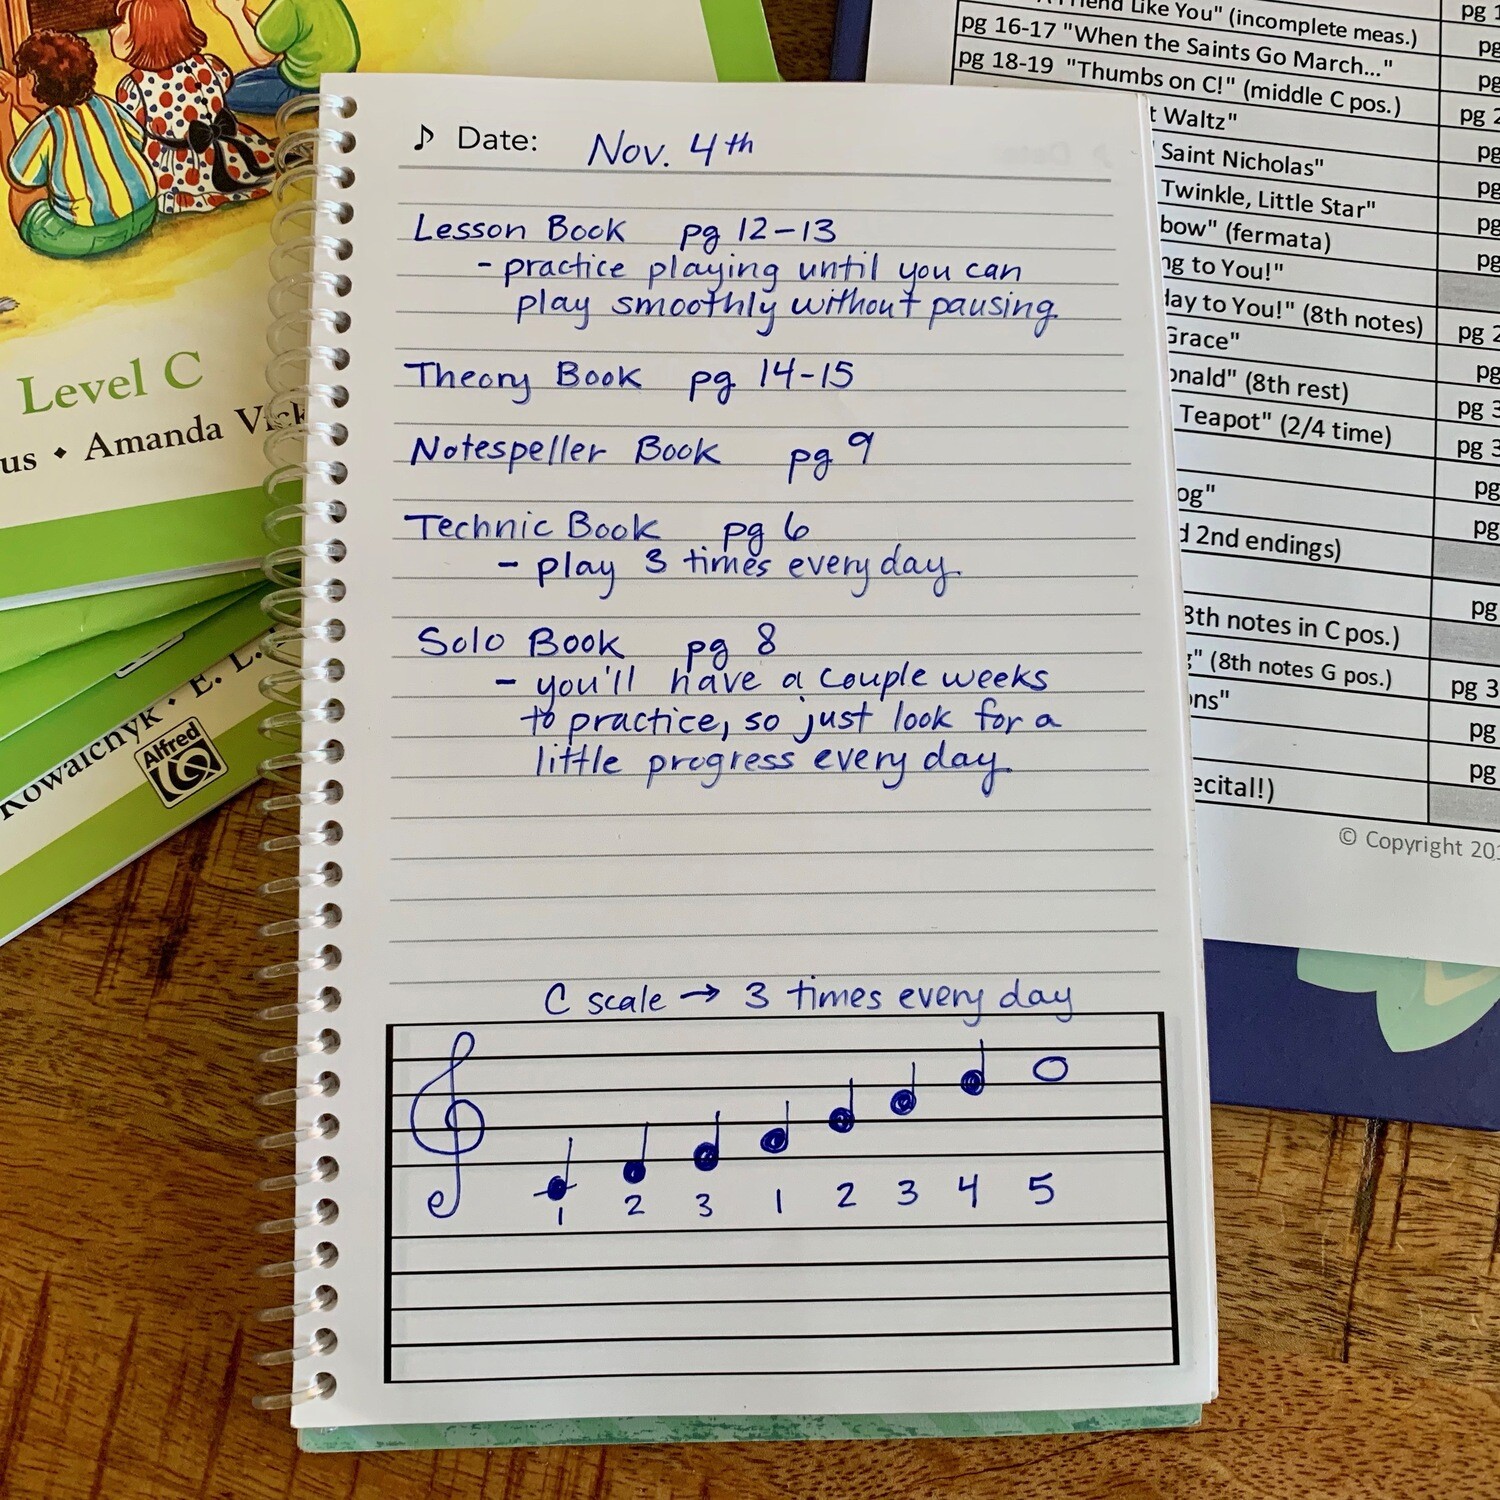 Date: Nov. 4th
Lesson Book pg 12-13
- practice playing until you can
play smoothly without pausing.
Theory Book pg 14-15
Notespeller Book pg 9
Technic Book pg 6
- play 3 times every day.
Solo Book pg 8
- you'll have a couple weeks
to practice, so just look for a
little progress every day.
C scale → 3 times every day
1 2 3 1 2 3 4 5
Level C
us • Amanda Vick
Kowalchyk • E. L.
Alfred
Friend Like You" (incomplete meas.)
pg 16-17 "When the Saints Go March..." pg
pg 18-19 "Thumbs on C!" (middle C pos.) pg
t Waltz" pg 2
Saint Nicholas" pg
Twinkle, Little Star" pg
bow" (fermata) pg
ng to You!" pg
day to You!" (8th notes)
Grace" pg 2
onald" (8th rest) pg
Teapot" (2/4 time) pg 3
pg 3
og" pg
d 2nd endings) pg
8th notes in C pos.) pg
" (8th notes G pos.)
ons" pg 3
pg
ecital!) pg
© Copyright 201